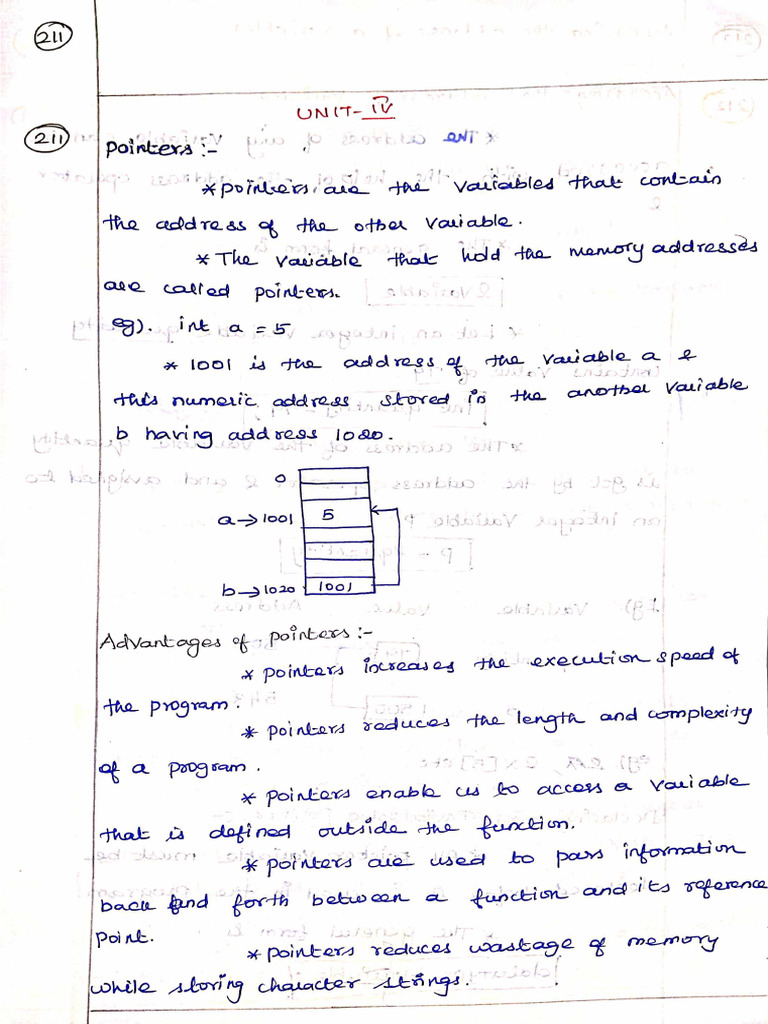 211
UNIT-IV
211
Pointers :-
* Pointers are the variables that contain
the address of the other variable.
* The variable that hold the memory addresses
are called pointers.
eg). int a = 5
* 1001 is the address of the variable a &
this numeric address stored in the another variable
b having address 1020.
0
a → 1001 5
b → 1020 1001
Advantages of pointers :-
* Pointers increases the execution speed of
the program.
* Pointers reduces the length and complexity
of a program.
* Pointers enable us to access a variable
that is defined outside the function.
* Pointers are used to pass information
back and forth between a function and its reference
point.
* Pointers reduces wastage of memory
while storing character strings.